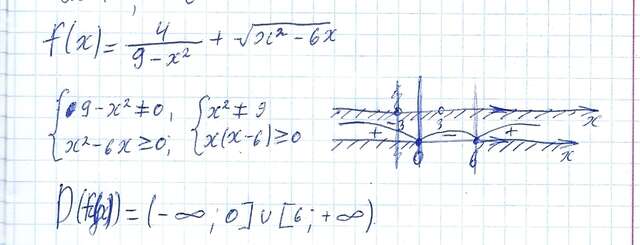 f(x) = 4/(9-x²) + √(x²-6x)
{ 9-x² ≠ 0, { x² ≠ 9
{ x²-6x ≥ 0; { x(x-6) ≥ 0
-3 3 x
+ - +
0 6 x
D(f(x)) = (-∞; 0] ∪ [6; +∞)